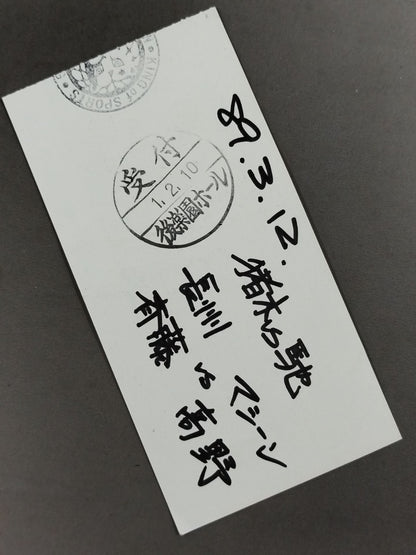 KING of SPORTS
受付
1.2.10
後楽園ホール
89.3.12.
猪木vs馳
長州 マシーン
斉藤 vs 高野